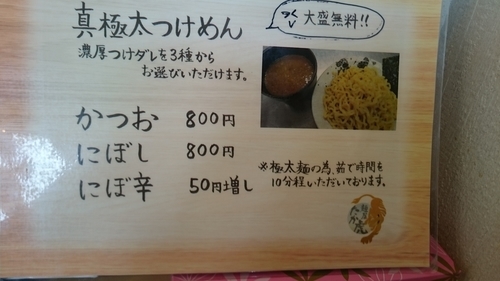 真極太つけめん
大盛無料!!
濃厚つけダレを3種から
お選びいただけます。
かつお 800円
にぼし 800円
にぼ辛 50円増し
※極太麺の為、茹で時間を
10分程いただいております。